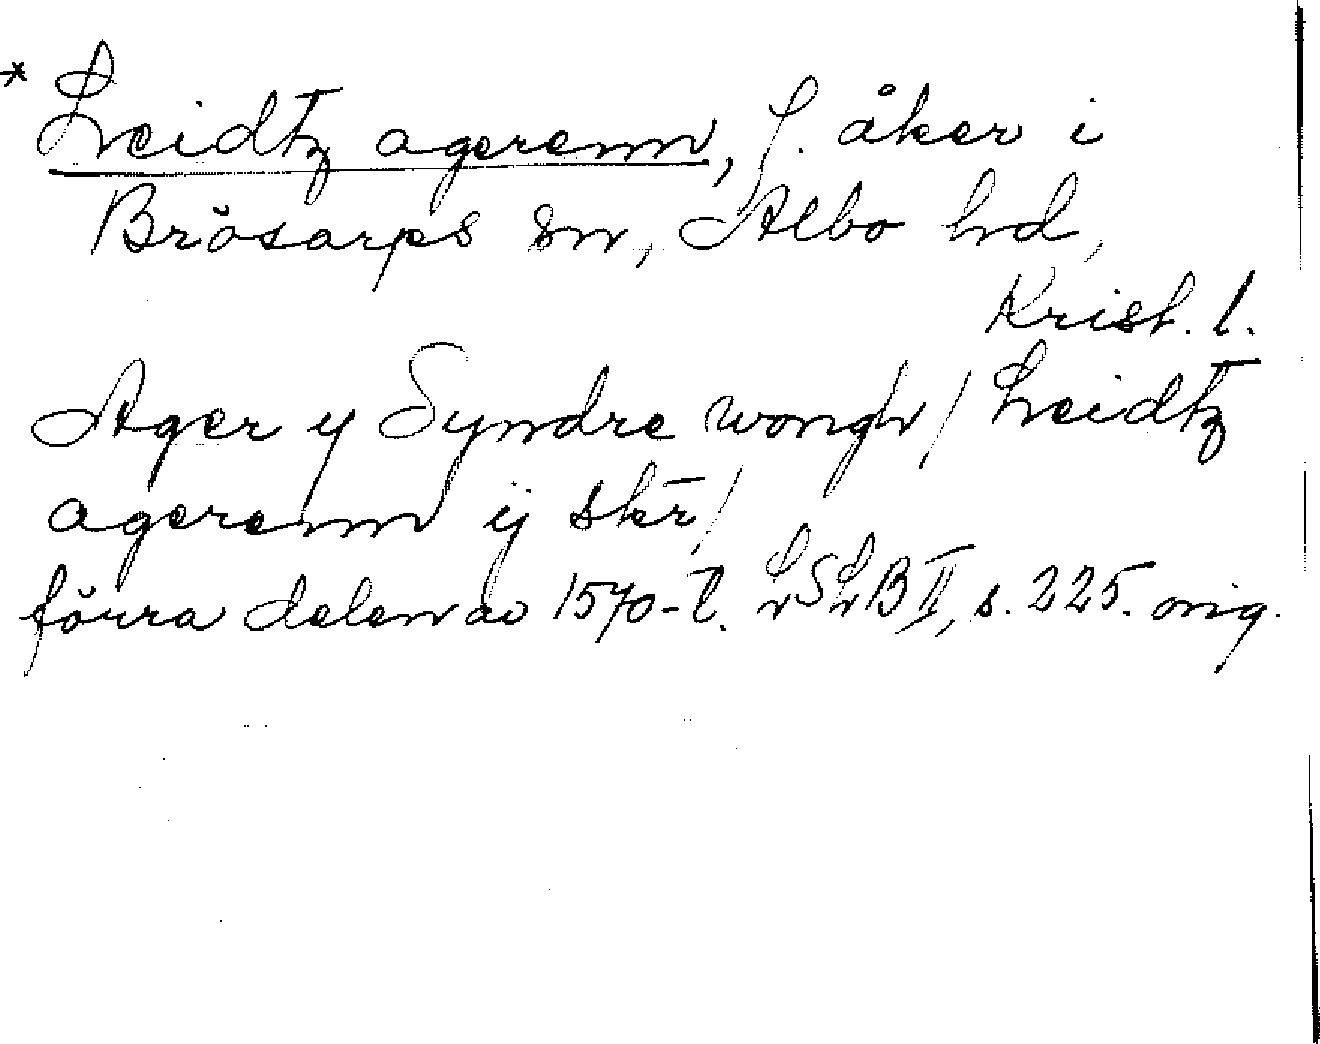 * Leidtz agerenn, f. åker i
Brösarps sn, Albo hd,
Krist. l.
Ager y Syndre wongh / Leidtz
agerenn ij skr̄ /
förra delen av 1570-t. LSLB II, s. 225. orig.